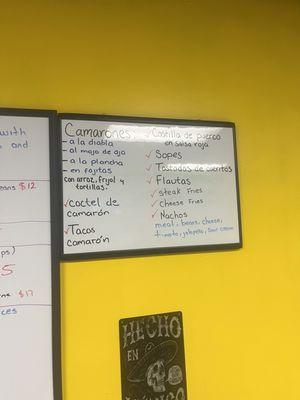 with
and
eans $12
ps)
5
me $17
ces
Camarones:
- a la diabla
- al mojo de ajo
- a la plancha
- en fajitas
con arroz, frijol y
tortillas.
✓coctel de
camarón
✓Tacos
camarón
✓Costilla de puerco
en salsa roja
✓ Sopes
✓ Tostadas de cueritos
✓ Flautas
✓ steak Fries
✓ Cheese Fries
✓ Nachos
meat, beans, cheese,
tomato, jalapeño, sour cream
HECHO
EN